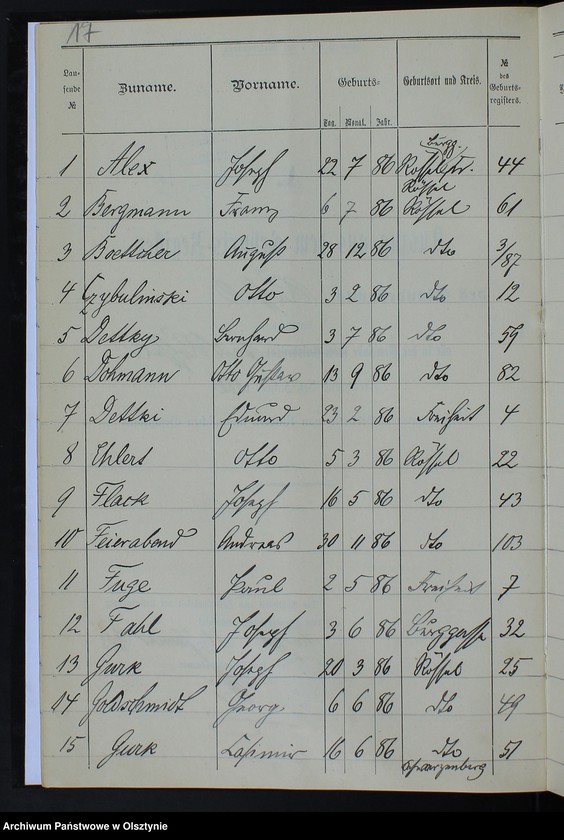 17
Laufende № Zuname. Vorname. Geburts- Geburtsort und Kreis. № des Geburtsregisters.
Tag. Monat. Jahr.
1 Alex Joseph 22 7 86 44
Rössel
2 Bergmann Franz 6 7 86 Rössel 61
3 Boettcher August 28 12 86 dto 3/87
4 Czybulinski Otto 3 2 86 dto 12
5 Dettky Bernhard 3 7 86 dto 59
6 Dohmann Otto Gustav 13 9 86 dto 82
7 Dettki Eduard 23 2 86 Freiheit 4
8 Ehlert Otto 5 3 86 Rössel 22
9 Flack Joseph 16 5 86 dto 43
10 Feierabend Andreas 30 11 86 dto 103
11 Fuge Paul 2 5 86 Freiheit 7
12 Fahl Joseph 3 6 86 Burggasse 32
13 Gurk Joseph 20 3 86 Rössel 25
14 Goldschmidt Georg. 6 6 86 dto 49
15 Gurk Casimir 16 6 86 dto 51
Schwarzenberg
Archiwum Państwowe w Olsztynie